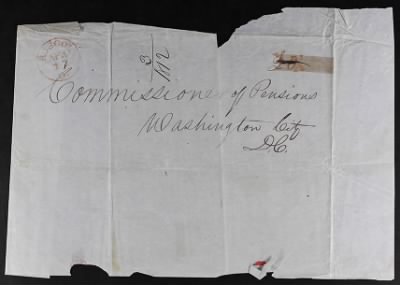 3
1112
Commissioner of Pensions
Washington City
D.C.